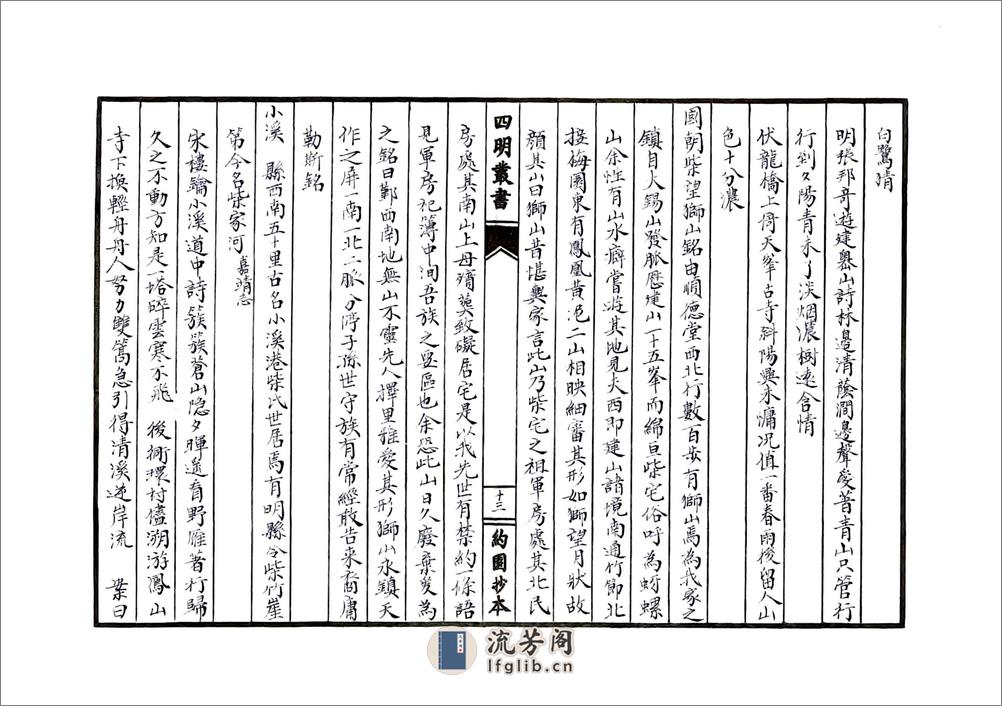 白鷺晴
明張邦奇遊建嶴山詩林邊清蔭澗邊聲愛著青山只管行
行到夕陽青未了淡烟濃樹遠含情
伏龍橋上倚天峯古寺斜陽興未慵况值一番春雨後留人山
色十分濃
國朝柴望獅山銘由順德堂西北行數百步有獅山焉為我家之
鎮自大錫山發脈歷建山一十五峯而綿亘柴宅俗呼為蚜螺
山余性有山水癖嘗遊其地見夫西即建山諸境南通竹節北
接梅園東有鳳凰黃泥二山相映細審其形如獅望月狀故
顏其山曰獅山昔堪輿家言此山乃柴宅之祖軍房處其北民
四明叢書
十三
約園抄本
房處其南山上毋殯葬致礙居宅是以我先世有禁約一條語
見軍房祀簿中洵吾族之 區也余恐此山日久廢棄爰為
之銘曰鄞西南地無山不靈先人擇里雅愛其形獅山永鎮天
作之屏一南一北二脈分渟子孫世守族有常經敢告來裔庸
勒斯銘
小溪 縣西南五十里古名小溪港柴氏世居焉有明縣令柴竹崖
第今名柴家河 嘉靖志
宋樓鑰小溪道中詩簇簇蒼山隐夕暉遥看野雁著行歸
久之不動方知是一搭碎雲寒不飛 後衝環村儘溯游鳳山
寺下換輕舟舟人努力雙篙急引得清溪逆岸流 案曰
流芳阁
lfglib.cn